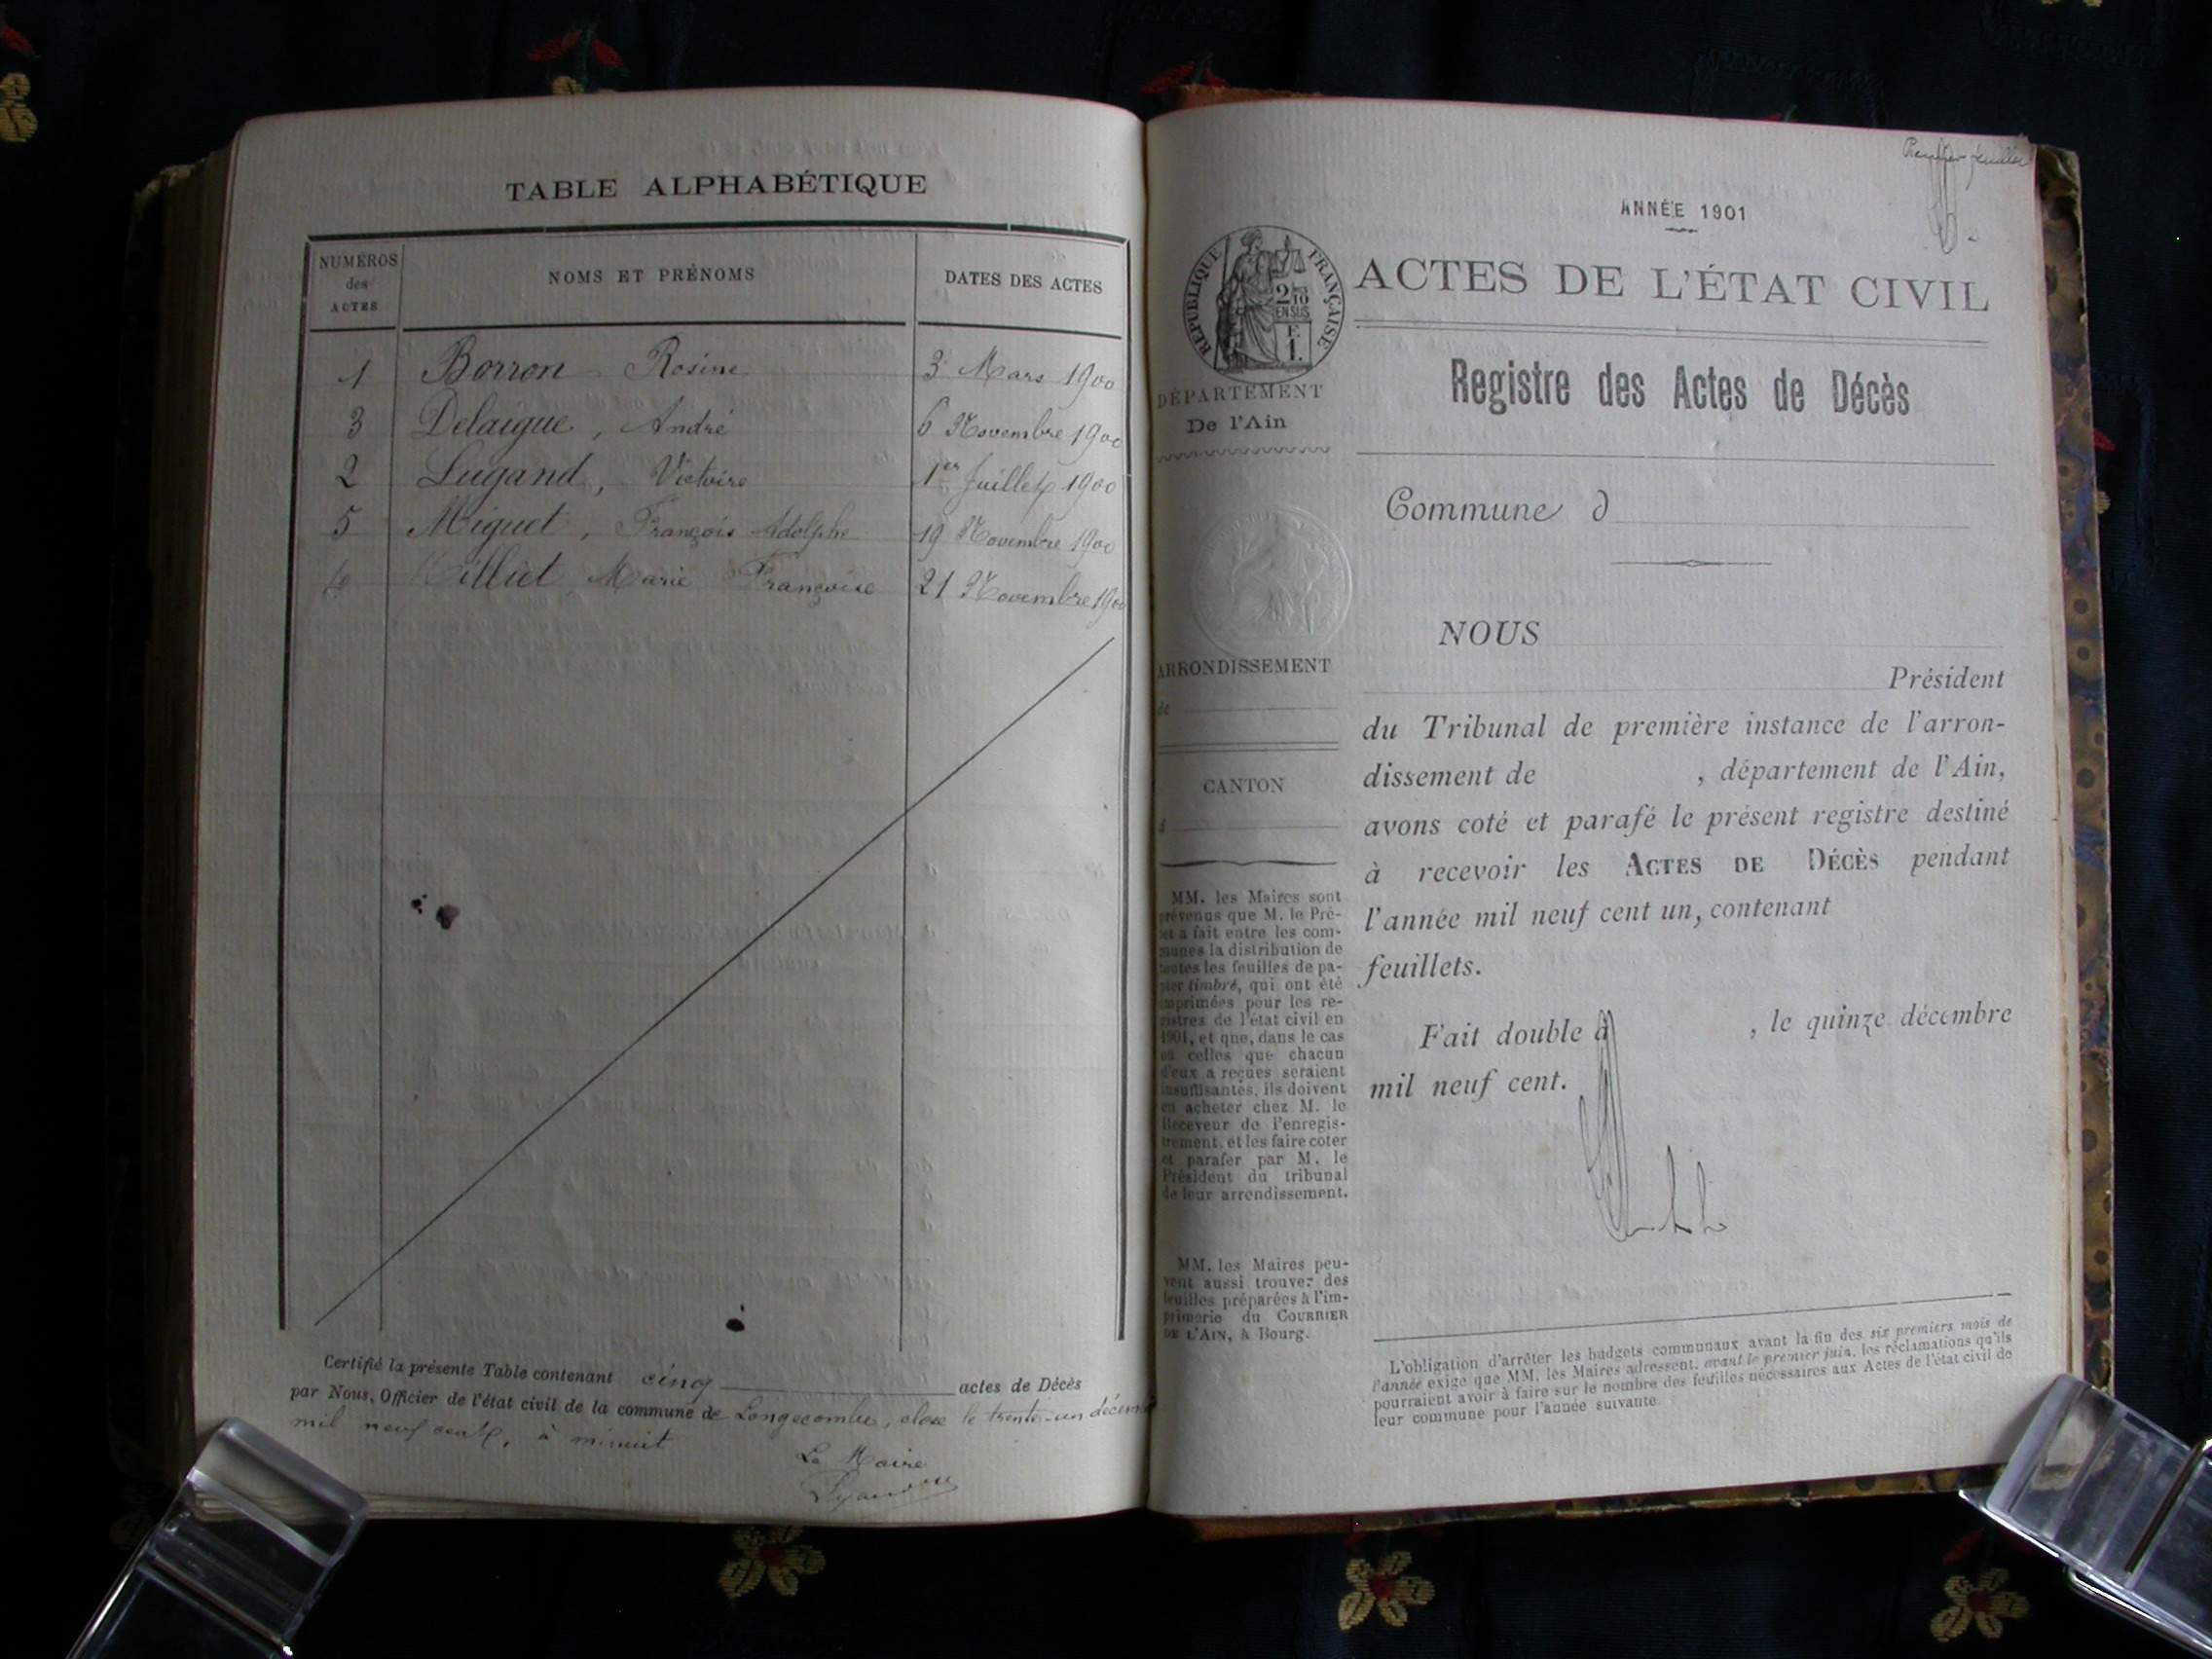 TABLE ALPHABÉTIQUE
NUMÉROS
des
ACTES
NOMS ET PRÉNOMS
DATES DES ACTES
1 Borron Rosine 3 Mars 1900
3 Delaigue, André 6 Novembre 1900
2 Lugand, Victoire 1er Juillet 1900
5 Miguet, François Adolphe 19 Novembre 1900
Milliet, Marie Françoise 21 Novembre 1900
Certifié la présente Table contenant cinq actes de Décès
par Nous, Officier de l'état civil de la commune de Longecombe, close le trente-un décembre
mil neuf cent, à minuit
Le Maire
Premier feuillet
ANNÉE 1901
RÉPUBLIQUE FRANÇAISE
2/10
EN SUS
F.
1.
ACTES DE L'ÉTAT CIVIL
Registre des Actes de Décès
DÉPARTEMENT
De l'Ain
Commune d
ARRONDISSEMENT
de
CANTON
d
MM. les Maires sont
prévenus que M. le Pré-
fet a fait entre les com-
munes la distribution de
toutes les feuilles de pa-
pier timbré, qui ont été
imprimées pour les re-
gistres de l'état civil en
1901, et que, dans le cas
où celles que chacun
d'eux a reçues seraient
insuffisantes, ils doivent
en acheter chez M. le
Receveur de l'enregis-
trement, et les faire coter
et parafer par M. le
Président du tribunal
de leur arrondissement.
MM. les Maires peu-
vent aussi trouver des
feuilles préparées à l'im-
primerie du COURRIER
DE L'AIN, à Bourg.
NOUS
Président
du Tribunal de première instance de l'arron-
dissement de , département de l'Ain,
avons coté et parafé le présent registre destiné
à recevoir les ACTES DE DÉCÈS pendant
l'année mil neuf cent un, contenant
feuillets.
Fait double à , le quinze décembre
mil neuf cent.
L'obligation d'arrêter les budgets communaux avant la fin des six premiers mois de
l'année exige que MM. les Maires adressent, avant le premier juin, les réclamations qu'ils
pourraient avoir à faire sur le nombre des feuilles nécessaires aux Actes de l'état civil de
leur commune pour l'année suivante.